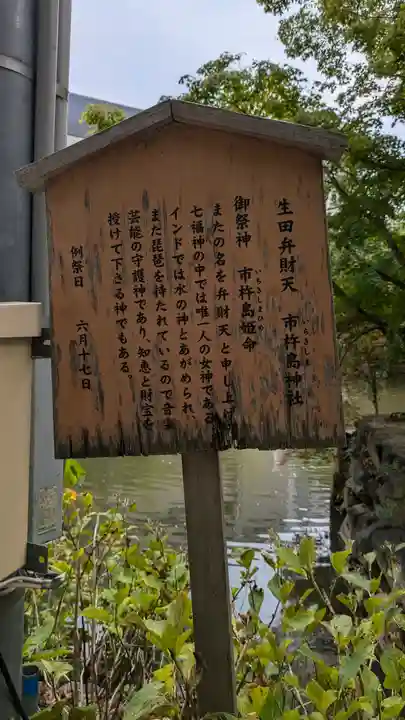 生田弁財天 市杵島神社
いちきしま
御祭神 市杵島姫命
いちきしまひめ
またの名を弁財天と申し上げ
七福神の中では唯一人の女神である
インドでは水の神とあがめられ、
また琵琶を持たれているので音楽
芸能の守護神であり、知恵と財宝を
授けて下さる神でもある。
例祭日 六月十七日